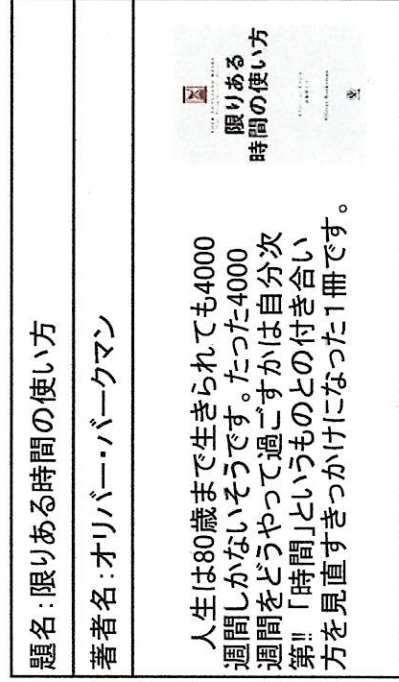 題名:限りある時間の使い方
著者名:オリバー・バークマン
人生は80歳まで生きられても4000
週間しかないそうです。たった4000
週間をどうやって過ごすかは自分次
第!!「時間」というものとの付き合い
方を見直すきっかけになった1冊です。
限りある
時間の使い方